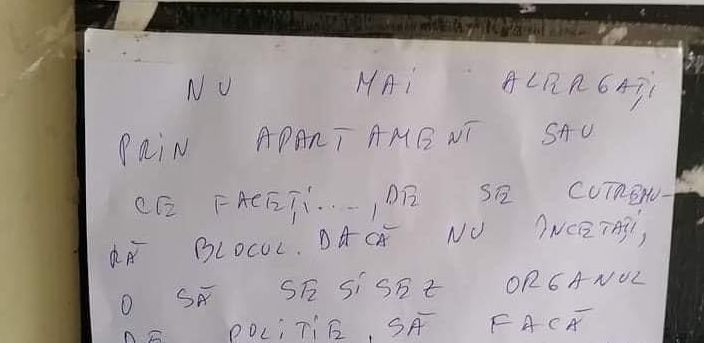 NU MAI ALERGAȚI
PRIN APARTAMENT SAU
CE FACEȚI...., DE SE CUTREMU-
RĂ BLOCUL. DACĂ NU ÎNCETAȚI,
O SĂ SESISEZ ORGANUL
DE POLIȚIE, SĂ FACĂ